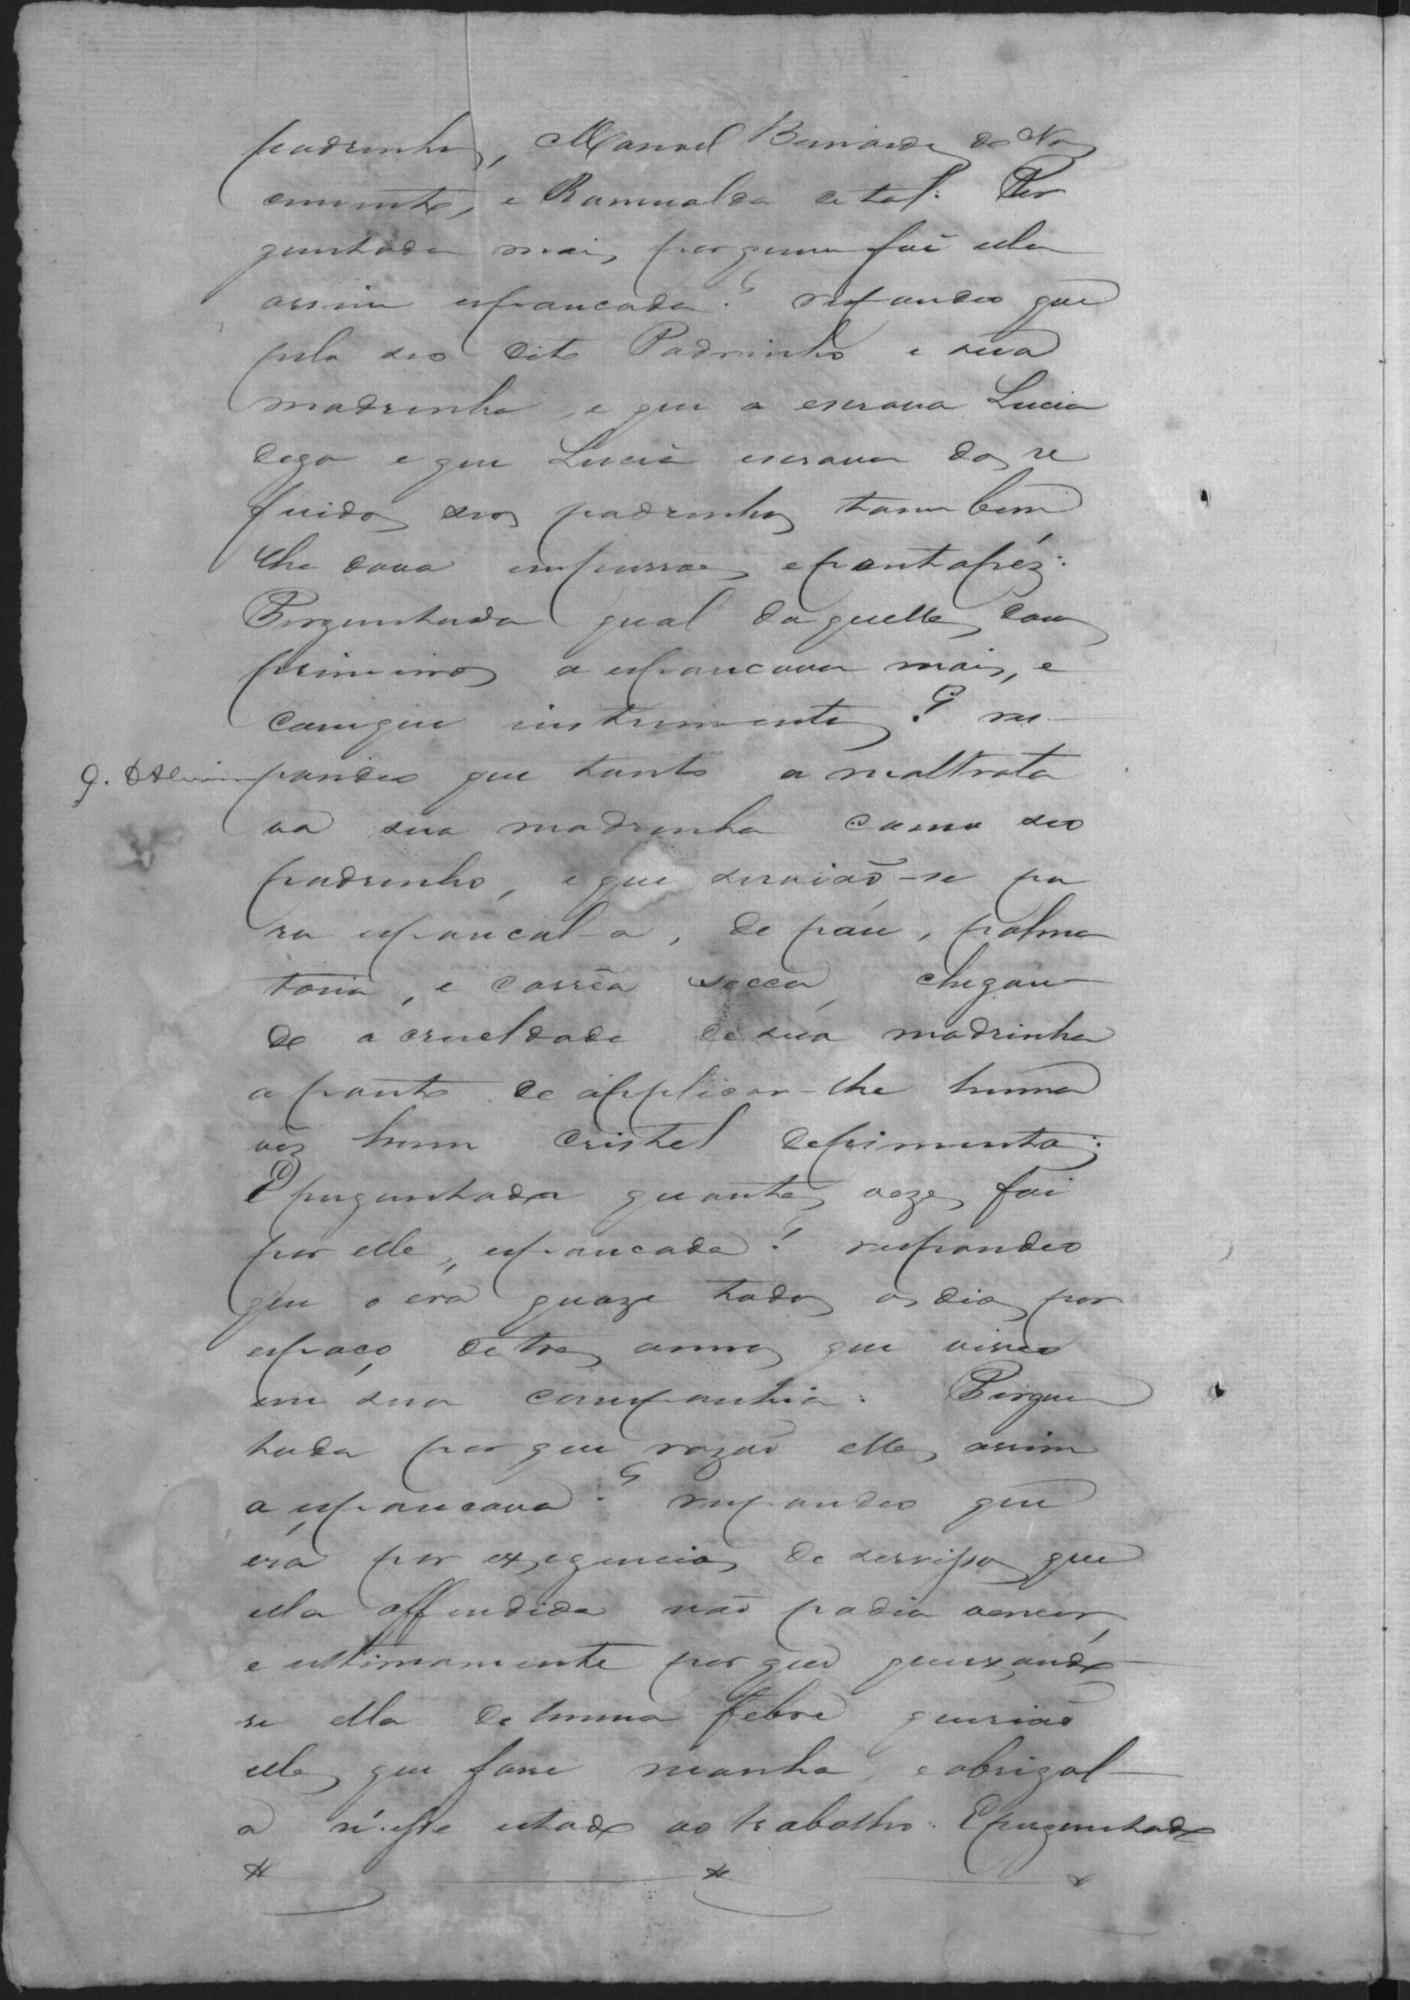 padrinhos, Manoel Bernardes do Nas
cimento, e Romualda de tal: Per
guntada mais por quem foi ella
assim espancada? respondeo que
pelo seo dito Padrinho e sua
madrinha, e que a escrava Lucia
digo e que Lucia escrava dos re
firidos seos padrinhos tambem
lhe dava empurroes e pontapéz:
Perguntada qual daquelles dous
primeiros a espancava mais, e
comque instrumentos? res-
pondeo que tanto a maltrata
va sua madrinha como seo
padrinho, e que serviaõ-se pa
ra espancal-a, de páu, palma
toria, e corrêa secca, chegan-
do a crueldade de sua madrinha
a ponto de applicar-lhe huma
vez hum cristel depimenta:
E perguntada quantas vezes foi
por elles, espancada? respondeo
que o era quaze todos os dias por
espaço de tres annos que viveo
em sua companhia: Pergun
tada por que razaõ elles assim
a espancava? respondeo que
era por exigencias de servisso que
ella offendida naõ podia vencer,
e ultimamente por que queixando-
se ella de huma febre queriaõ
elles que fosse manha, e obrigal-
a n'esse estado ao trabalho: E perguntado